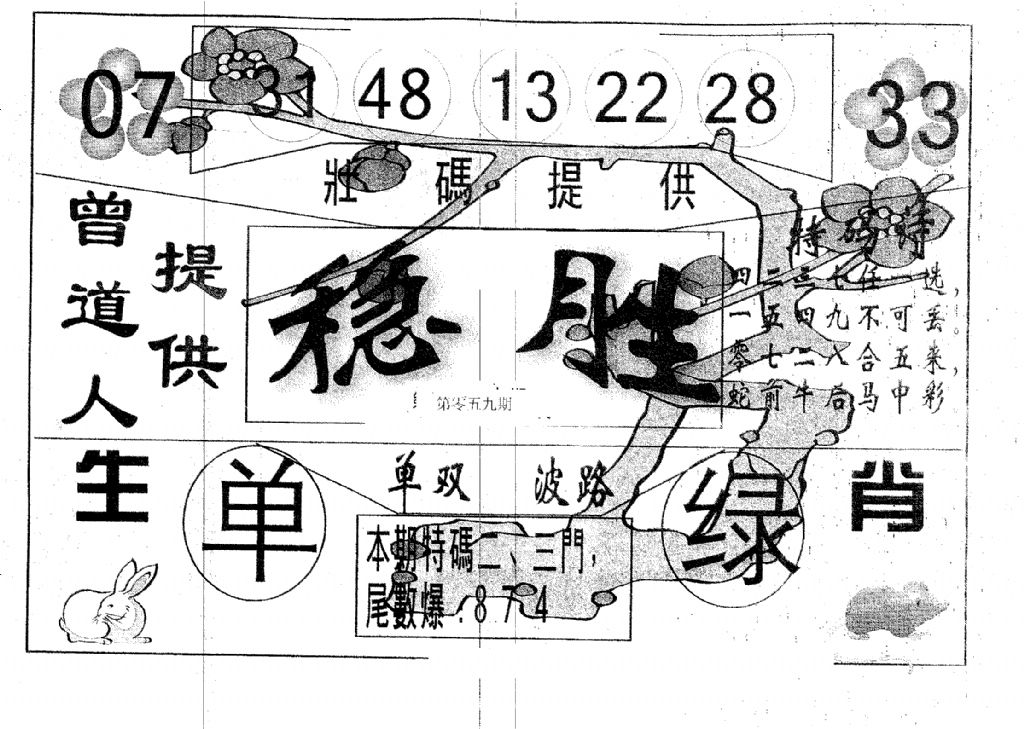 07 31 48 13 22 28 33
壯碼提供
曾道人
提供
稳胜
第零五九期
特码诗
四二三七任一选,
一五四九不可丢。
零七二八合五来,
蛇前牛后马中彩
生肖
单
单双 波路
绿
本期特碼二、三門,
尾數爆:8 7 4